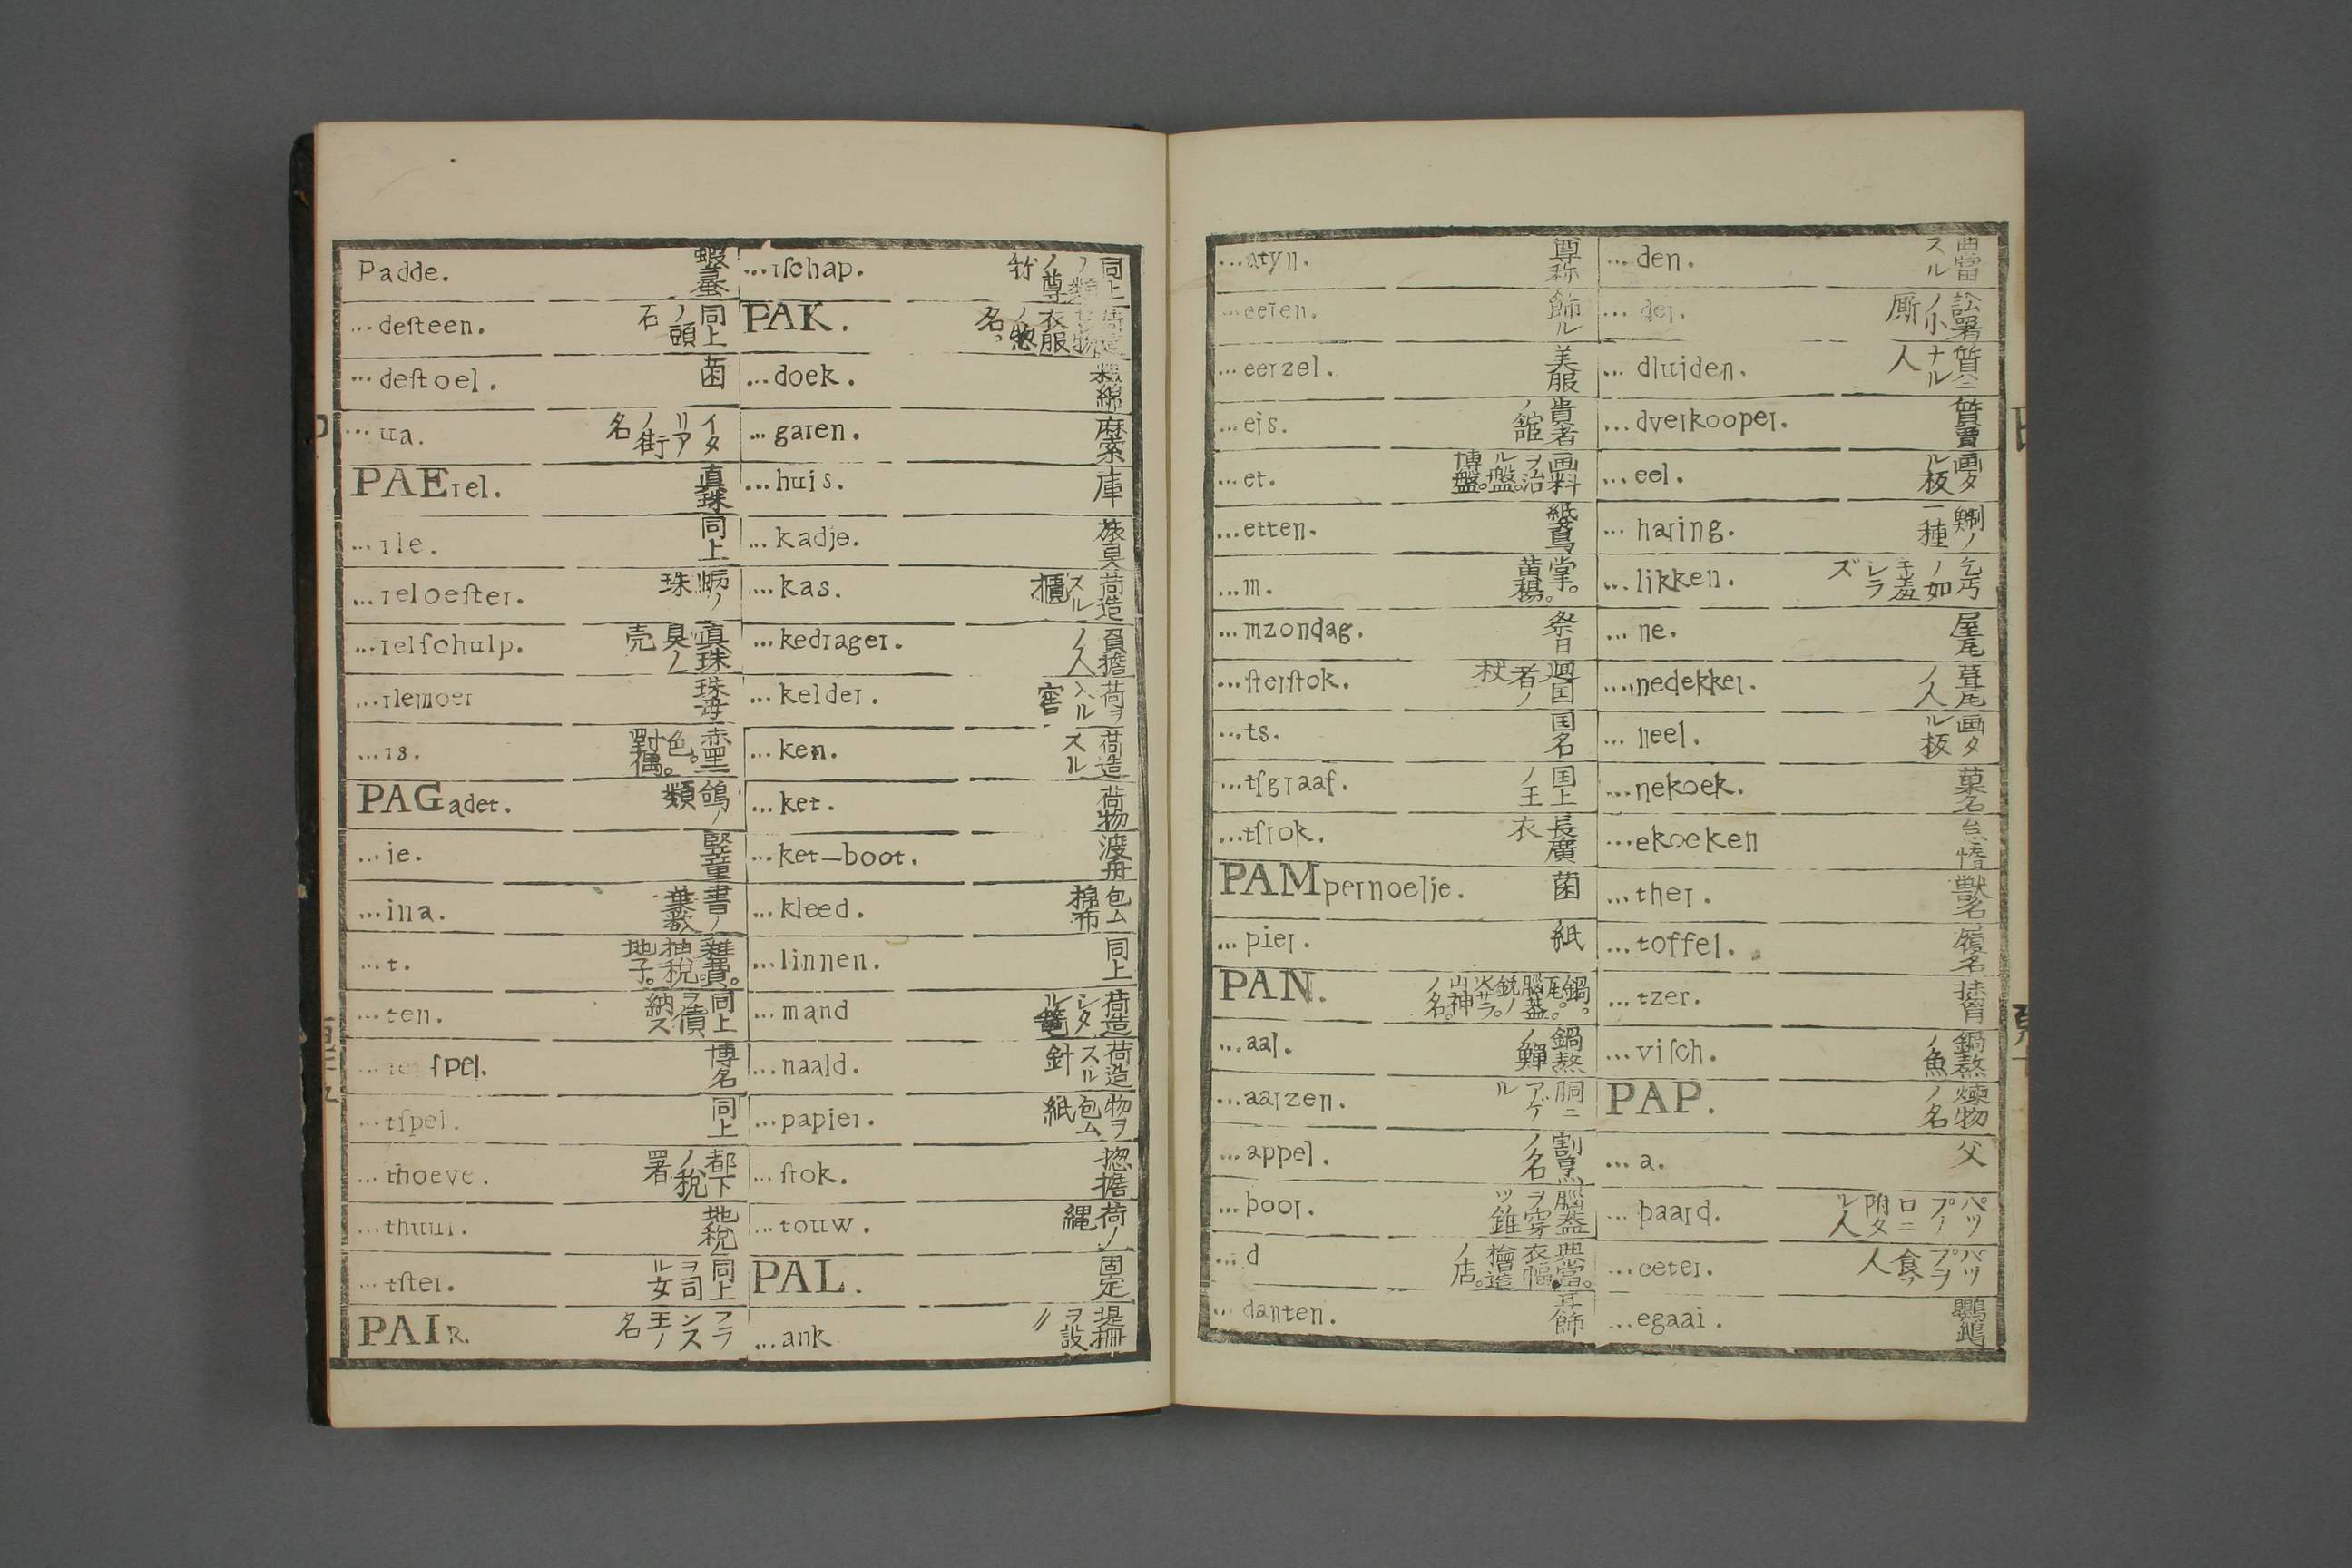 Padde. 蝦蟇
...deſteen. 同上ノ頭石
...deſtoel. 菌
...ua. イタリアノ街名
PAErel. 真珠
...rle. 同上
...reloeſter. 蛎ノ珠
...relſchulp. 真珠貝ノ売
...rlemoer 珠母
...rs. 赤黑色。對偶。
PAGadet. 鴿ノ類
...ie. 竪童
...ina. 書ノ葉数
...t. 雜費。抽税。地子。
...ten. 同上ヲ償納ス
ſpel. 博名
...tſpel. 同上
...thoeve. 都下ノ税署
...thuur. 地税
...tſter. 同上ヲ司ル女
PAIR. フランス王ノ名
...rſchap. 同上ノ類ノ尊称
PAK. 荷造セシ物衣服ノ惣名。
...doek. 粗綿
...garen. 麻索
...huis. 庫
...kadje. 旅具
...kas. 荷造スル櫃
...kedrager. 負擔ノ人
...kelder. 荷ヲ入ルル窖
...ken. 荷造スル
...ket. 荷物
...ket-boot. 渡舟
...kleed. 包ム棉布
...linnen. 同上
...mand 荷造シタル籠
...naald. 荷造スル針
...papier. 物ヲ包ム紙
...ſtok. 惣擔
...touw. 荷ノ縄
PAL. 固定
...ank 堤柵ヲ設〃
...atyn. 尊称
...eeren. 飾ル
...eerzel. 美服
...eis. 貴者ノ舘
...et. 画料ヲ治ル盤。博盤。
...etten. 紙鳶
...m. 掌。黄楊。
...mzondag. 祭日
...ſterſtok. 廻国ノ者杖
...ts. 国名
...tſgraaf. 国上ノ王
...tſrok. 長廣衣
PAMpernoelje. 菌
...pier. 紙
PAN. 鍋。瓦。腦蓋。銃ノ火サラ。山神ノ名。
...aal. 鍋熬ノ鱓
...aarzen. 胴ニアゲル
...appel. 割烹ノ名
...boor. 腦蓋ヲ穿ツ錐
...d 典當。衣幅。檐造ノ店。
...danten. 耳飾
...den. 典當スル
...der. 訟署ノ小厮
...dluiden. 質ニナル人
...dverkooper. 質賣
...eel. 画タル板
...haring. 鯯ノ一種
...likken. 乞丐ノ如キ羞シラズ
...ne. 屋瓦
...nedekker. 葺瓦ノ人
...neel. 画タル板
...nekoek. 菓名
...ekoeken 怠惰
...ther. 獣名
...toffel. 履名
...tzer.
...viſch. 鍋熬ノ魚
PAP. 煉物ノ名
...a. 父
...baard. パップノ口ニ附タル人
...oeter. パップヲ食フ人
...egaai. 鸚鵡